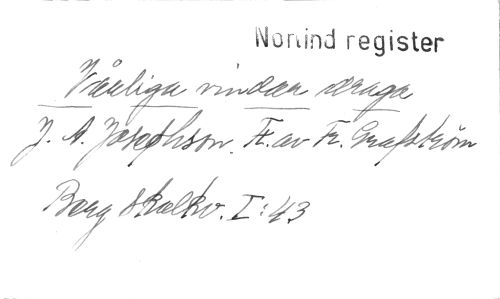 Norlind register
Vårliga vindar draga
J. A. Josephson. Ft. av Fr. Grafström
Berg Skolkv. I:43